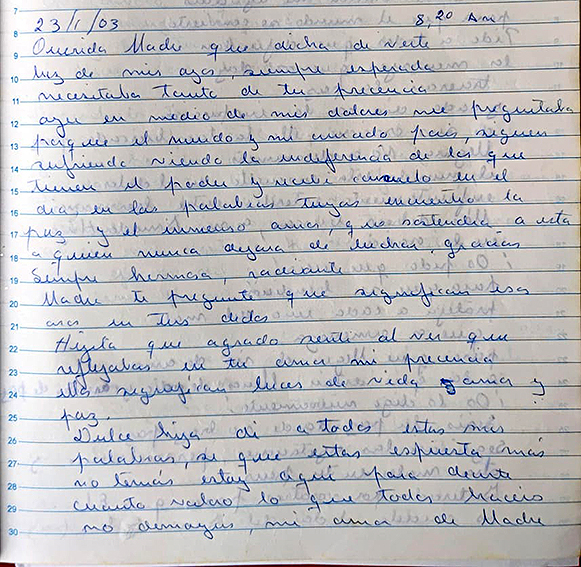 23/1/03 8,20 Am
Querida Madre que dicha de verte
luz de mis ojos, siempre esperada
necesitaba tanto de tu precencia
aqui en medio de mis dolores me preguntaba
porque el mundo y mi amado pais, siguen
sufriendo viendo la indeferencia de los que
tienen el poder y recibi consuelo en el
dia en las palabras tuyas encuentro la
paz y el inmenso, amor, que sostendra a esta
a quien nunca dejara de luchar, gracias
Sempre hermosa, radiante
Madre te pregunto que significan esos
aros en tus dedos
Hijita que agrado senti al ver que
reflejabas en tu alma mi precencia
ellos significan luces de vida amor y
paz.
Dulce hija di a todos estas mis
palabras, se que estas espuesta más
no temás estoy aqui para decirte
cuanto valoro lo que todos haceis
no desmayes, mi amor de Madre
7
8
9
10
11
12
13
14
15
16
17
18
19
20
21
22
23
24
25
26
27
28
29
30